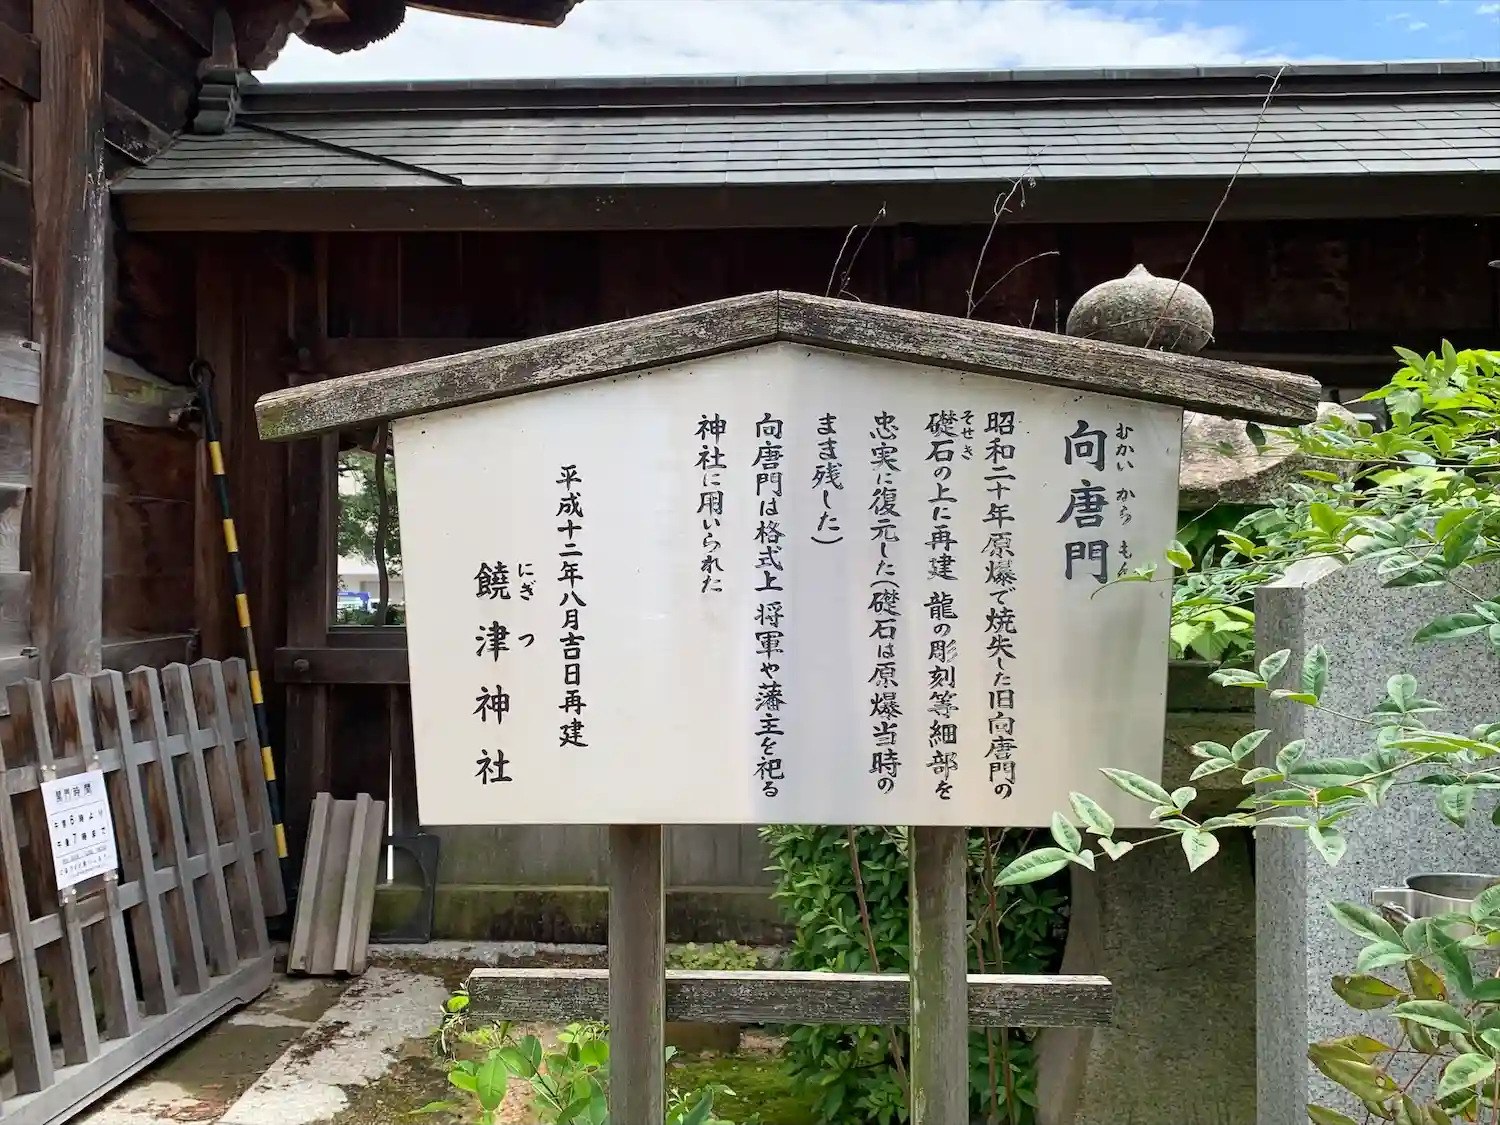 向唐門
むかい から もん
昭和二十年原爆で焼失した旧向唐門の
礎石の上に再建 龍の彫刻等細部を
そせき
忠実に復元した(礎石は原爆当時の
まま残した)
向唐門は格式上 将軍や藩主を祀る
神社に用いられた
平成十二年八月吉日再建
饒津神社
にぎ つ
開門時間
午前6時より
午後7時まで